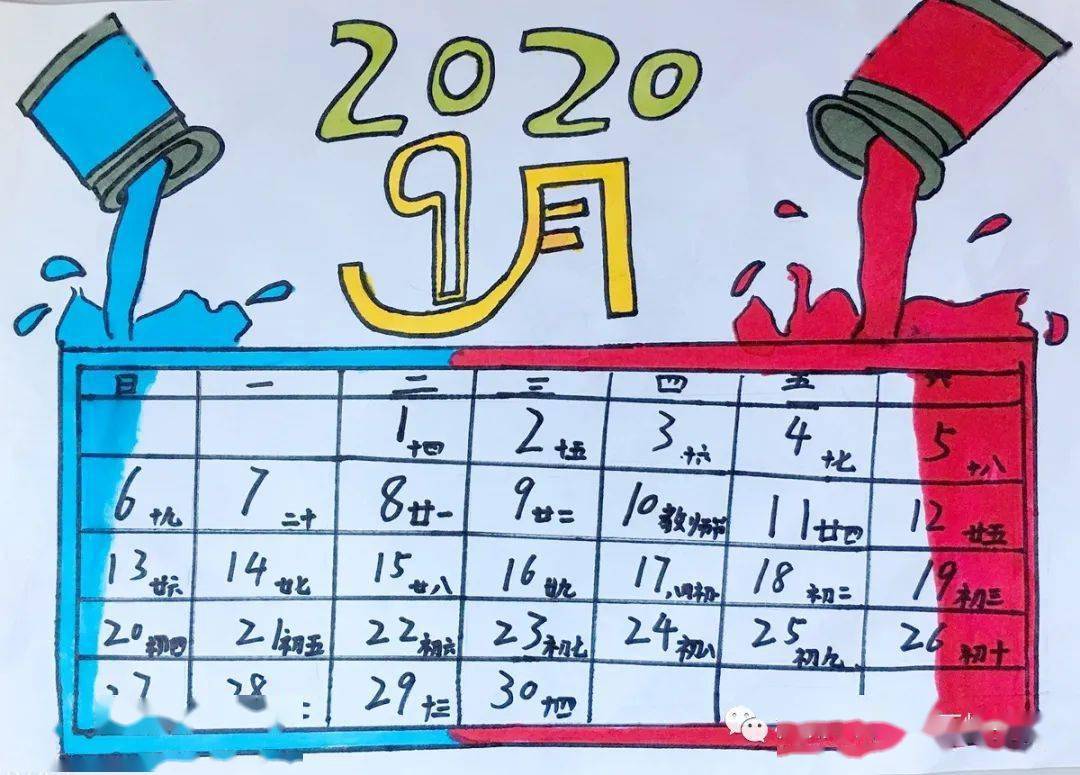 2020
9月
日 一 二 三 四 五 六
1 十四 2 十五 3 十六 4 十七 5 十八
6 十九 7 二十 8 廿一 9 廿二 10 教师节 11 廿四 12 廿五
13 廿六 14 廿七 15 廿八 16 廿九 17 18 初二 19 初三
20 初四 21 初五 22 初六 23 初七 24 初八 25 初九 26 初十
27 28 29 十三 30 十四